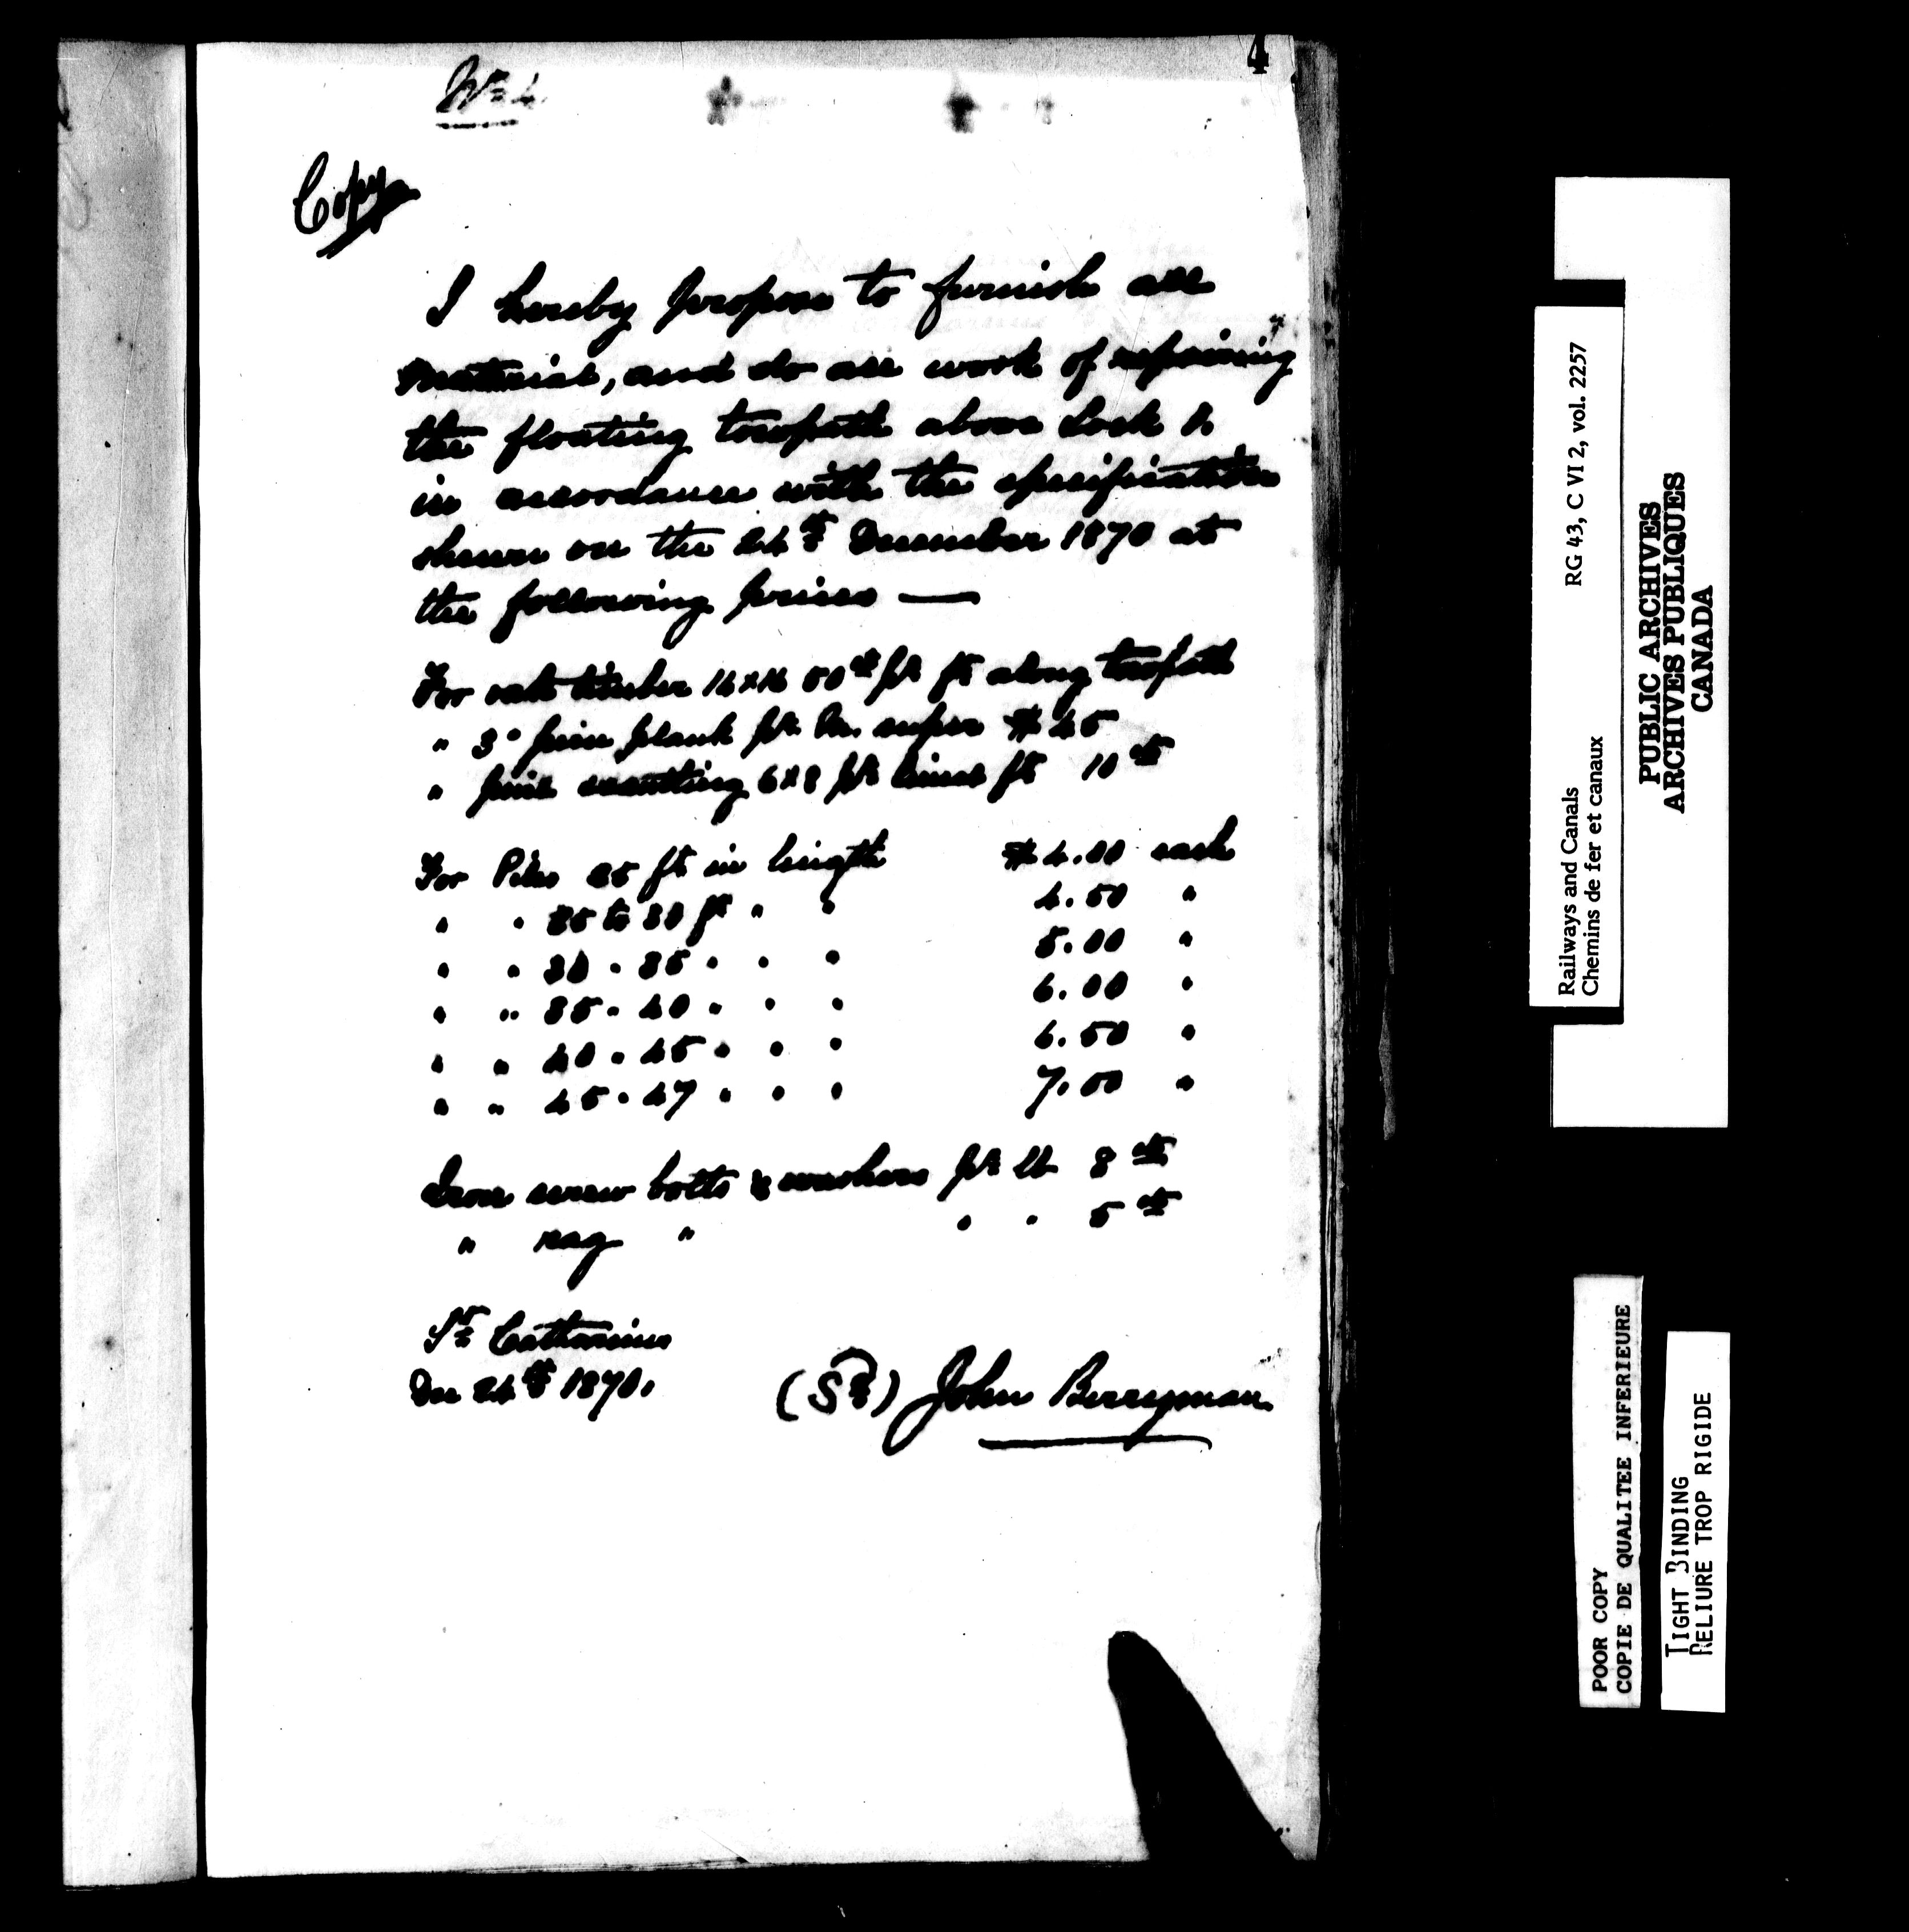 4
Copy
I hereby propose to furnish all
material, and do all work of repairing
the floating towpath above Lock 2
in accordance with the specification
shewn on the 24th December 1870 at
the following prices —
For oak timber 50cts pr ft along towpath
" 3" pine plank pr M. super $45
" pine scantling 6x8 pr lineal ft 10 cts
For Piles 25 ft in length $4.00 each
" " 25 to 30 ft " " 4.50 "
" " 30 " 35 " " " 5.00 "
" " 35 " 40 " " " 6.00 "
" " 40 " 45 " " " 6.50 "
" " 45 " 47 " " " 7.00 "
Iron screw bolts & washers pr lb 8 cts
" rag " " " 5 cts
St Catharines
Dec 24th 1870.
(Sd) John Berryman
Railways and Canals RG 43, C VI 2, vol. 2257
Chemins de fer et canaux
PUBLIC ARCHIVES
ARCHIVES PUBLIQUES
CANADA
POOR COPY
COPIE DE QUALITEE INFERIEURE
TIGHT BINDING
RELIURE TROP RIGIDE